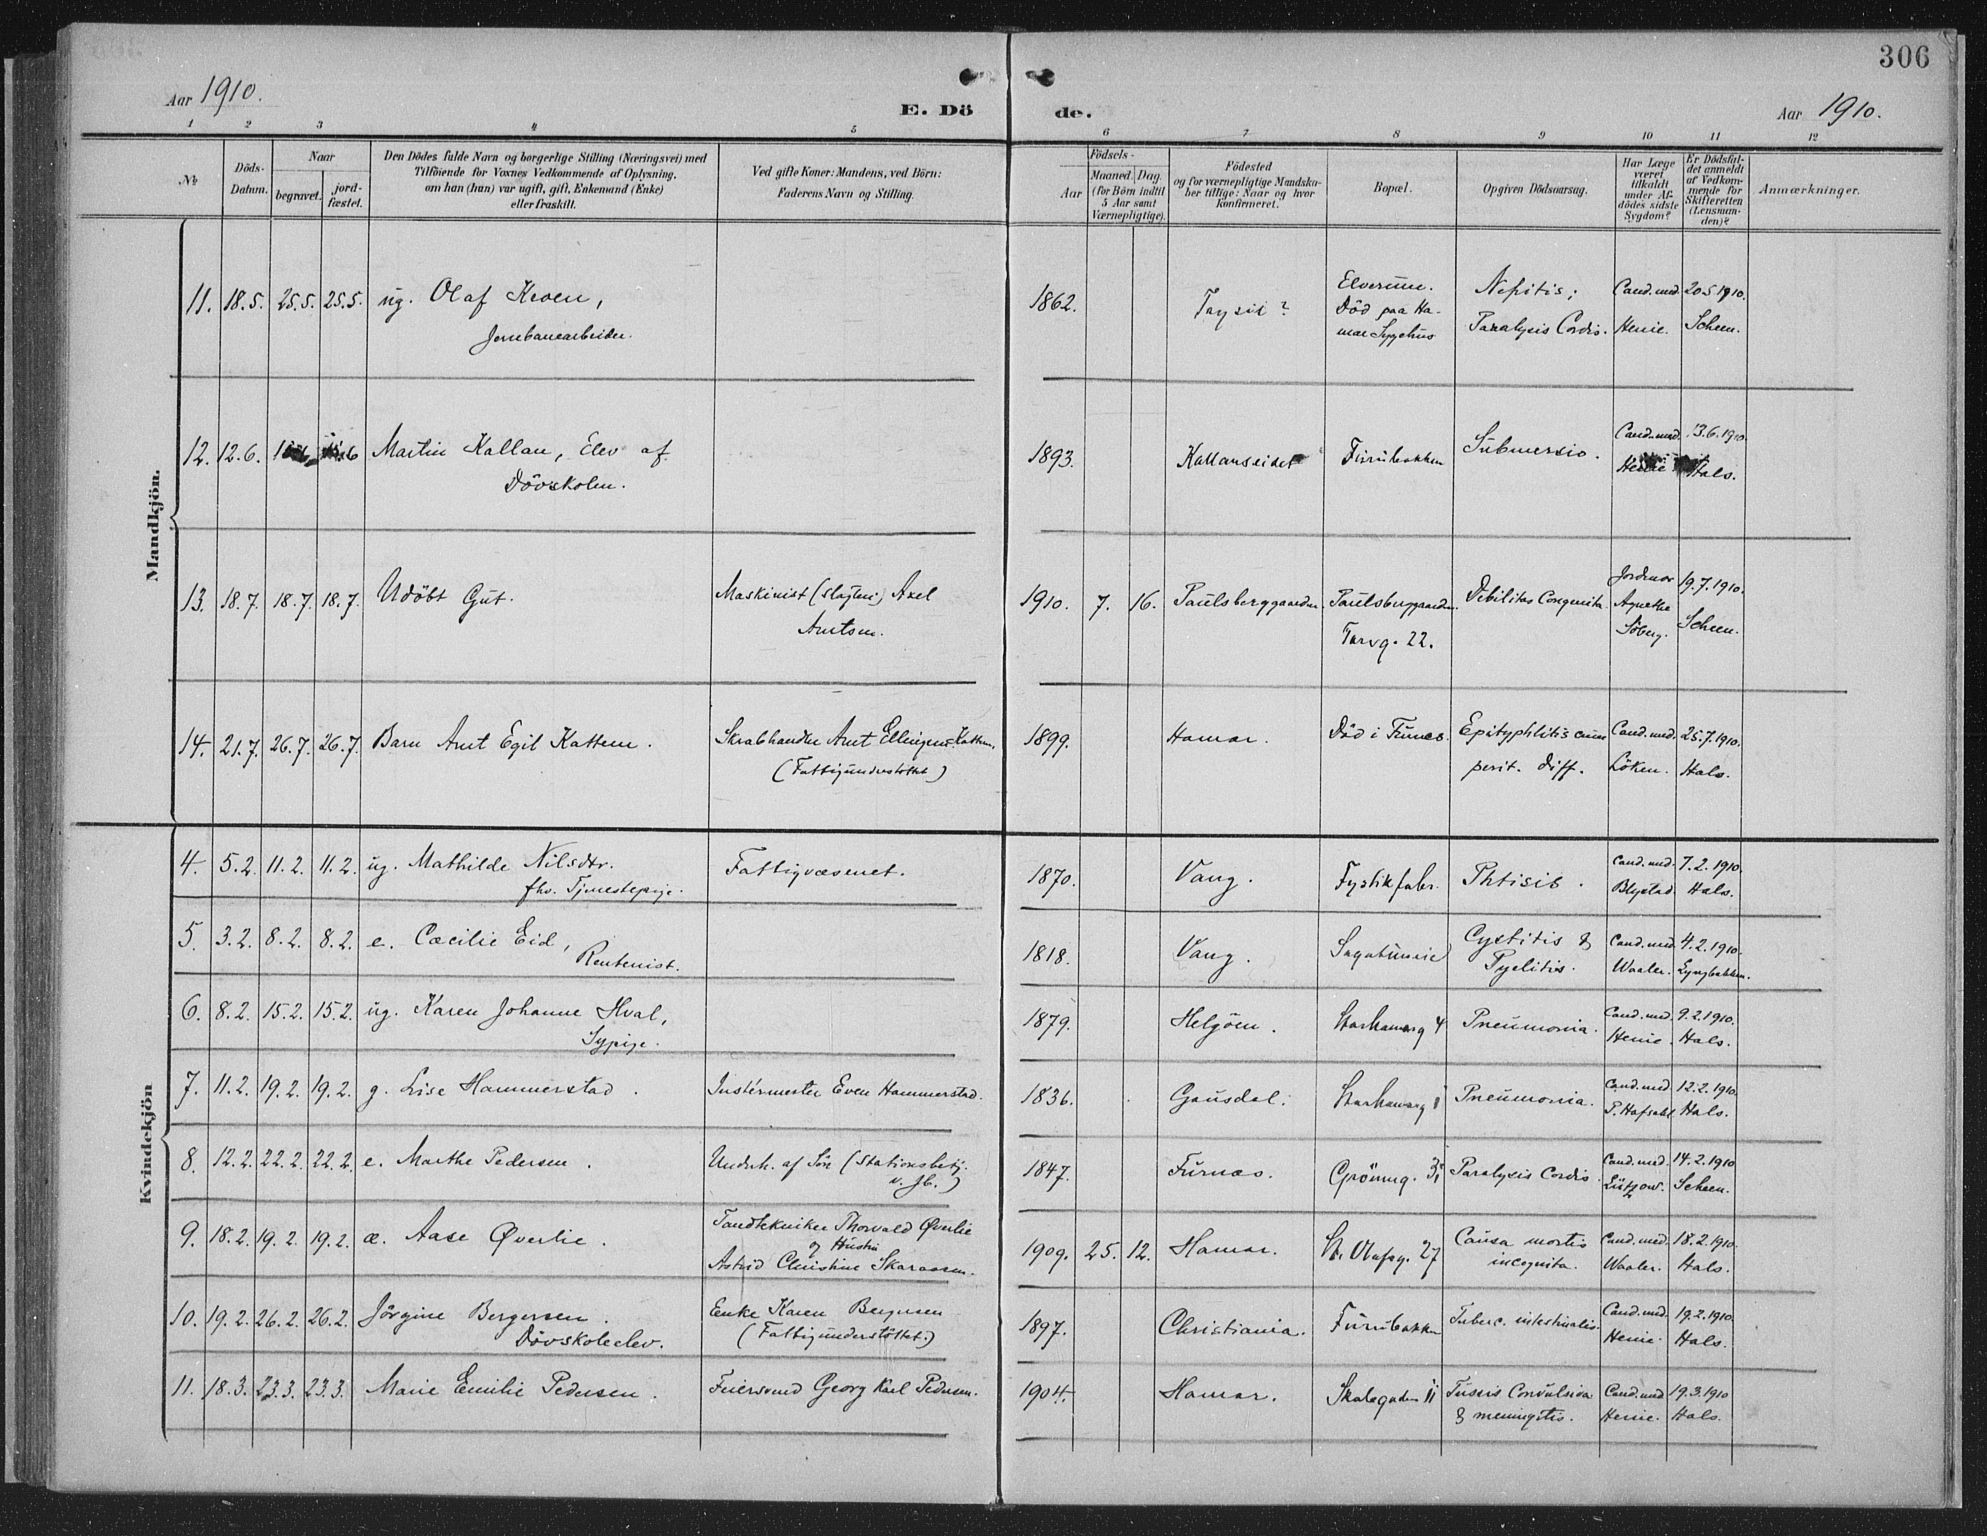 306
Aar 1910.
E. Dö
de.
Aar 1910.
1 2 3 4 5 6 7 8 9 10 11 12
№
Döds-Datum.
Naar
begravet.
jord-fæstet.
Den Dödes fulde Navn og borgerlige Stilling (Næringsvei) med
Tilföiende for Voxnes Vedkommende af Oplysning,
om han (hun) var ugift, gift, Enkemand (Enke)
eller fraskilt.
Ved gifte Koner: Mandens, ved Börn:
Faderens Navn og Stilling.
Födsels-
Aar
Maaned. Dag.
(for Börn indtil
5 Aar samt
Værnepligtige).
Födested
og for værnepligtige Mandska-
ber tillige: Naar og hvor
konfirmeret.
Bopæl.
Opgiven Dödsaarsag.
Har Læge
været
tilkaldt
under Af-
dödes sidste
Sygdom?
Er Dödsfal-
det anmeldt
af Vedkom-
mende for
Skifteretten
(Lensman-
den)?
Anmærkninger.
Mandkjön.
11. 18.5. 25.5. 25.5. ug. Olaf Kroen, 1862. Trysil? Elverum. Nefritis; Cand.med. 20.5.1910.
Jernbanearbeider. Död paa Ha- Paralysis Cordis. Henie. Scheen.
mar Sygehus
12. 12.6. Martin Kallan, Elev af 1893. Furubakken Submersio. Cand.med. 13.6.1910.
Dövskolen. Henie Hals.
13. 18.7. 18.7. 18.7. Udöbt Gut. Maskinist Axel 1910. 7. 16. Paulsberggaarden. Paulsberggaarden. Debilitas Congenita. Jordmor 19.7.1910.
Arntsen. Torvg. 22. Agnethe Scheen.
Söberg.
14. 21.7. 26.7. 26.7. Barn Arnt Egil Kattem. Skrabhandler Arnt Ellingsen Kattem, 1899. Hamar. Död i Furnes. Epityphlitis cum Cand.med. 25.7.1910.
(Fattigunderstöttet) perit. diff. Löken. Hals.
Kvindekjön
4. 5.2. 11.2. 11.2. ug. Mathilde Nilsdtr. Fattigvæsenet. 1870. Vang. Fyrstikfabr. Phtisis. Cand.med. 7.2.1910.
fhv. Tjenestepige. Blystad. Hals.
5. 3.2. 8.2. 8.2. e. Cæcilie Eid, 1818. Vang. Sagatunvei Cystitis & Cand.med. 4.2.1910.
Rentenist. Pyelitis. Waaler. Lyngbakken.
6. 8.2. 15.2. 15.2. ug. Karen Johanne Hval, 1879. Helgöen. Storhamarg 4 Pneumonia. Cand.med. 9.2.1910.
Sypige. Henie. Hals.
7. 11.2. 19.2. 19.2. g. Lise Hammerstad. Instermester Even Hammerstad. 1836. Gausdal. Storhamarg 1 Pneumonia. Cand.med 12.2.1910.
Hals.
8. 12.2. 22.2. 22.2. e. Marthe Pedersen. Underh. af Sön (Stationsbetj. 1847. Furnæs. Grönneg. Paralysis Cordis. Cand.med. 14.2.1910
v. Jb.) Lützow. Scheen.
9. 18.2. 19.2. 19.2. æ. Aase Øverlie. Tandtekniker Thorvald Øverlie 1909. 25. 12. Hamar. St. Olafsg. 27 Causa mortis Cand.med. 18.2.1910.
og Hustru incognita. Waaler. Hals.
Astrid Christine
10. 19.2. 26.2. 26.2. Jörgine Bergersen. Enke Karen Bergersen 1897. Christiania. Furubakken Tuberc. intestinalis. Cand.med. 19.2.1910.
Dövskoleelev. (Fattigunderstöttet.) Henie. Hals.
11. 18.3. 23.3. 23.3. Marie Emilie Pedersen. Feiersvend Georg Karl Pedersen. 1904. Hamar. Skolegaden 11 Tussis Convulsiva Cand.med 19.3.1910
& meningitis. Henie. Hals.